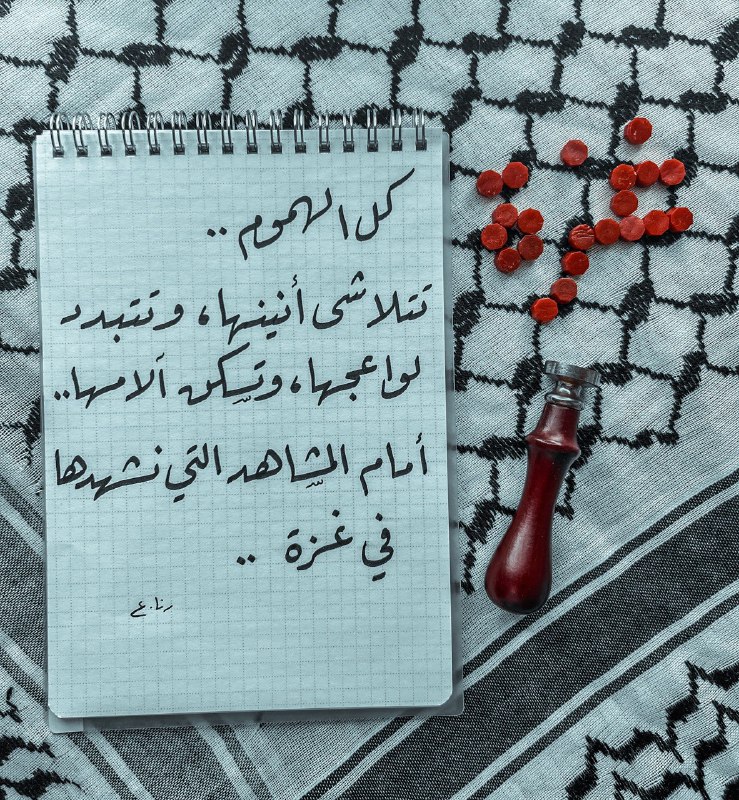 كل الهموم ..
تتلاشى أنينها، وتتبدد
لواعجها، وتسكن آلامها..
أمام المشاهد التي نشهدها
في غزة ..
رنا.ع
غزة